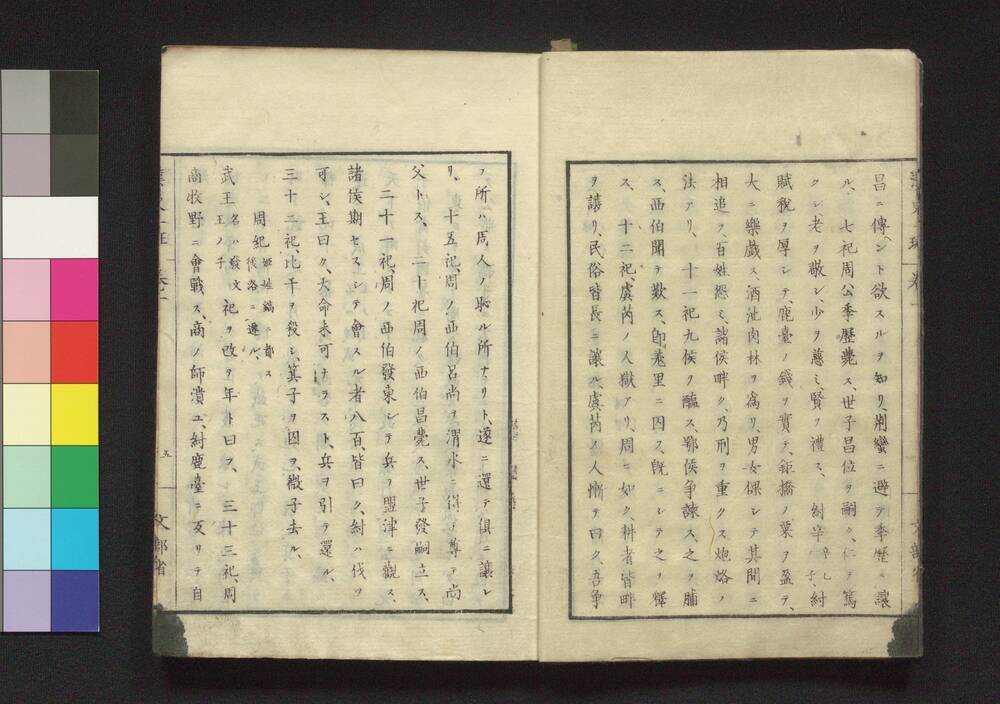 昌ニ傳ヘント欲スルヲ知リ、荆蠻ニ避テ季歷ニ讓
ル、 七祀周公季歷薨ス、世子昌位ヲ嗣ク、仁ニ篤
クシ、老ヲ敬シ、少ヲ慈ミ、賢ヲ禮ス、 紂辛 乙ノ子 紂
賦税ヲ厚シテ、鹿臺ノ錢ヲ實テ、鉅橋ノ粟ヲ盈テ、
大ニ樂戯ス、酒池肉林ヲ爲リ、男女倮シテ其間ニ
相追フ、百姓怨ミ、諸侯畔ク、乃刑ヲ重クス、炮烙ノ
法アリ、 十一祀九侯ヲ醢ス、鄂侯争諫ス、之ヲ脯
ス、西伯聞テ歎ス、即羑里ニ囚フ、既ニシテ之ヲ釋
ス、 十二祀、虞芮ノ人獄アリ、周ニ如ク、耕者皆畔
ヲ讓リ、民俗皆長ニ讓ル、虞芮ノ人慚テ曰ク、吾争
フ所ハ周人ノ恥ル所ナリト、遂ニ還テ俱ニ讓レ
リ、 十五祀、周ノ西伯呂尚ヲ渭水ニ得ノ尊テ尚
父トス、 二十祀周ノ西伯昌薨ス、世子發嗣立ス、
二十一祀、周ノ西伯發東シテ兵ヲ盟津ニ觀ス、
諸侯期セスシテ會スル者八百、皆曰ク、紂ハ伐ツ
可シ、王曰ク、天命未可ナラスト、兵ヲ引テ還ル、
三十二祀、比干ヲ殺シ、箕子ヲ囚フ、微子去ル、
周紀 姫姓鎬ニ都ス後洛ニ遷ル、
武王 名ハ發文王ノ子 祀ヲ改テ年ト曰フ、 三十三祀、周
商牧野ニ會戰ス、商ノ師潰ユ、紂鹿臺ニ反リテ自
五
文部省